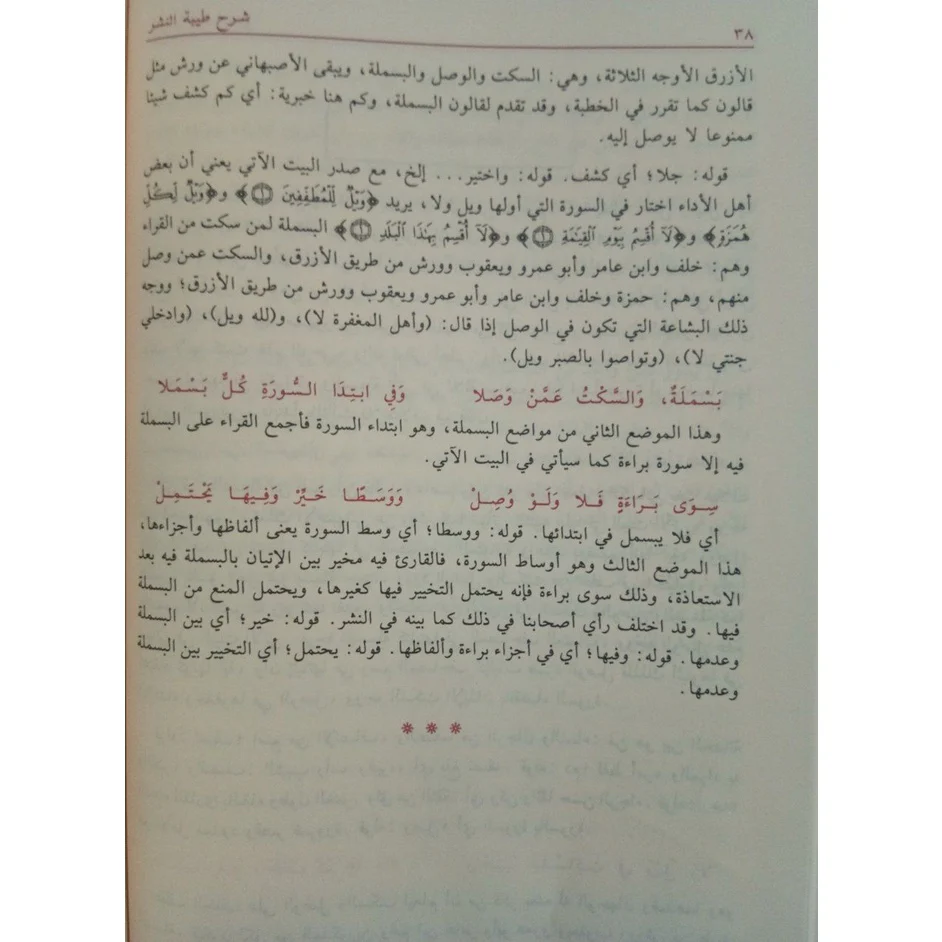 شرح طيبة النشر
٣٨
الأزرق الأوجه الثلاثة، وهي: السكت والوصل والبسملة، ويبقى الأصبهاني عن ورش مثل
قالون كما تقرر في الخطبة، وقد تقدم لقالون البسملة، وكم هنا خبرية: أي كم كشف شيئا
ممنوعا لا يوصل إليه.
قوله: جلا؛ أي كشف. قوله: واختير... إلخ، مع صدر البيت الآتي يعني أن بعض
أهل الأداء اختار في السورة التي أولها ويل ولا، يريد ﴿وَيْلٌ لِّلْمُطَفِّفِينَ ۝١﴾ و﴿وَيْلٌ لِّكُلِّ
هُمَزَةٍ﴾ و﴿لَآ أُقْسِمُ بِيَوْمِ ٱلْقِيَٰمَةِ ۝١﴾ و﴿لَآ أُقْسِمُ بِهَٰذَا ٱلْبَلَدِ ۝١﴾ البسملة لمن سكت من القراء
وهم: خلف وابن عامر وأبو عمرو ويعقوب وورش من طريق الأزرق، والسكت عمن وصل
منهم، وهم: حمزة وخلف وابن عامر وأبو عمرو ويعقوب وورش من طريق الأزرق؛ ووجه
ذلك البشاعة التي تكون في الوصل إذا قال: (وأهل المغفرة لا)، و(لله ويل)، (وادخلي
جنتي لا)، (وتواصوا بالصبر ويل).
بَسْمَلَةٌ، وَالسَّكْتُ عَمَّنْ وَصَلا وَفِي ابْتِدَا السُّورَةِ كُلٌّ بَسْمَلا
وهذا الموضع الثاني من مواضع البسملة، وهو ابتداء السورة فأجمع القراء على البسملة
فيه إلا سورة براءة كما سيأتي في البيت الآتي.
سِوَى بَرَاءَةٍ فَلا وَلَوْ وُصِلْ وَوَسَطًا خَيِّرْ وَفِيهَا يَحْتَمِلْ
أي فلا يبسمل في ابتدائها. قوله: ووسطا؛ أي وسط السورة يعنى ألفاظها وأجزاءها،
هذا الموضع الثالث وهو أوساط السورة، فالقارئ فيه مخير بين الإتيان بالبسملة فيه بعد
الاستعاذة، وذلك سوى براءة فإنه يحتمل التخيير فيها كغيرها، ويحتمل المنع من البسملة
فيها. وقد اختلف رأي أصحابنا في ذلك كما بينه في النشر. قوله: خير؛ أي بين البسملة
وعدمها. قوله: وفيها؛ أي في أجزاء براءة وألفاظها. قوله: يحتمل؛ أي التخيير بين البسملة
وعدمها.